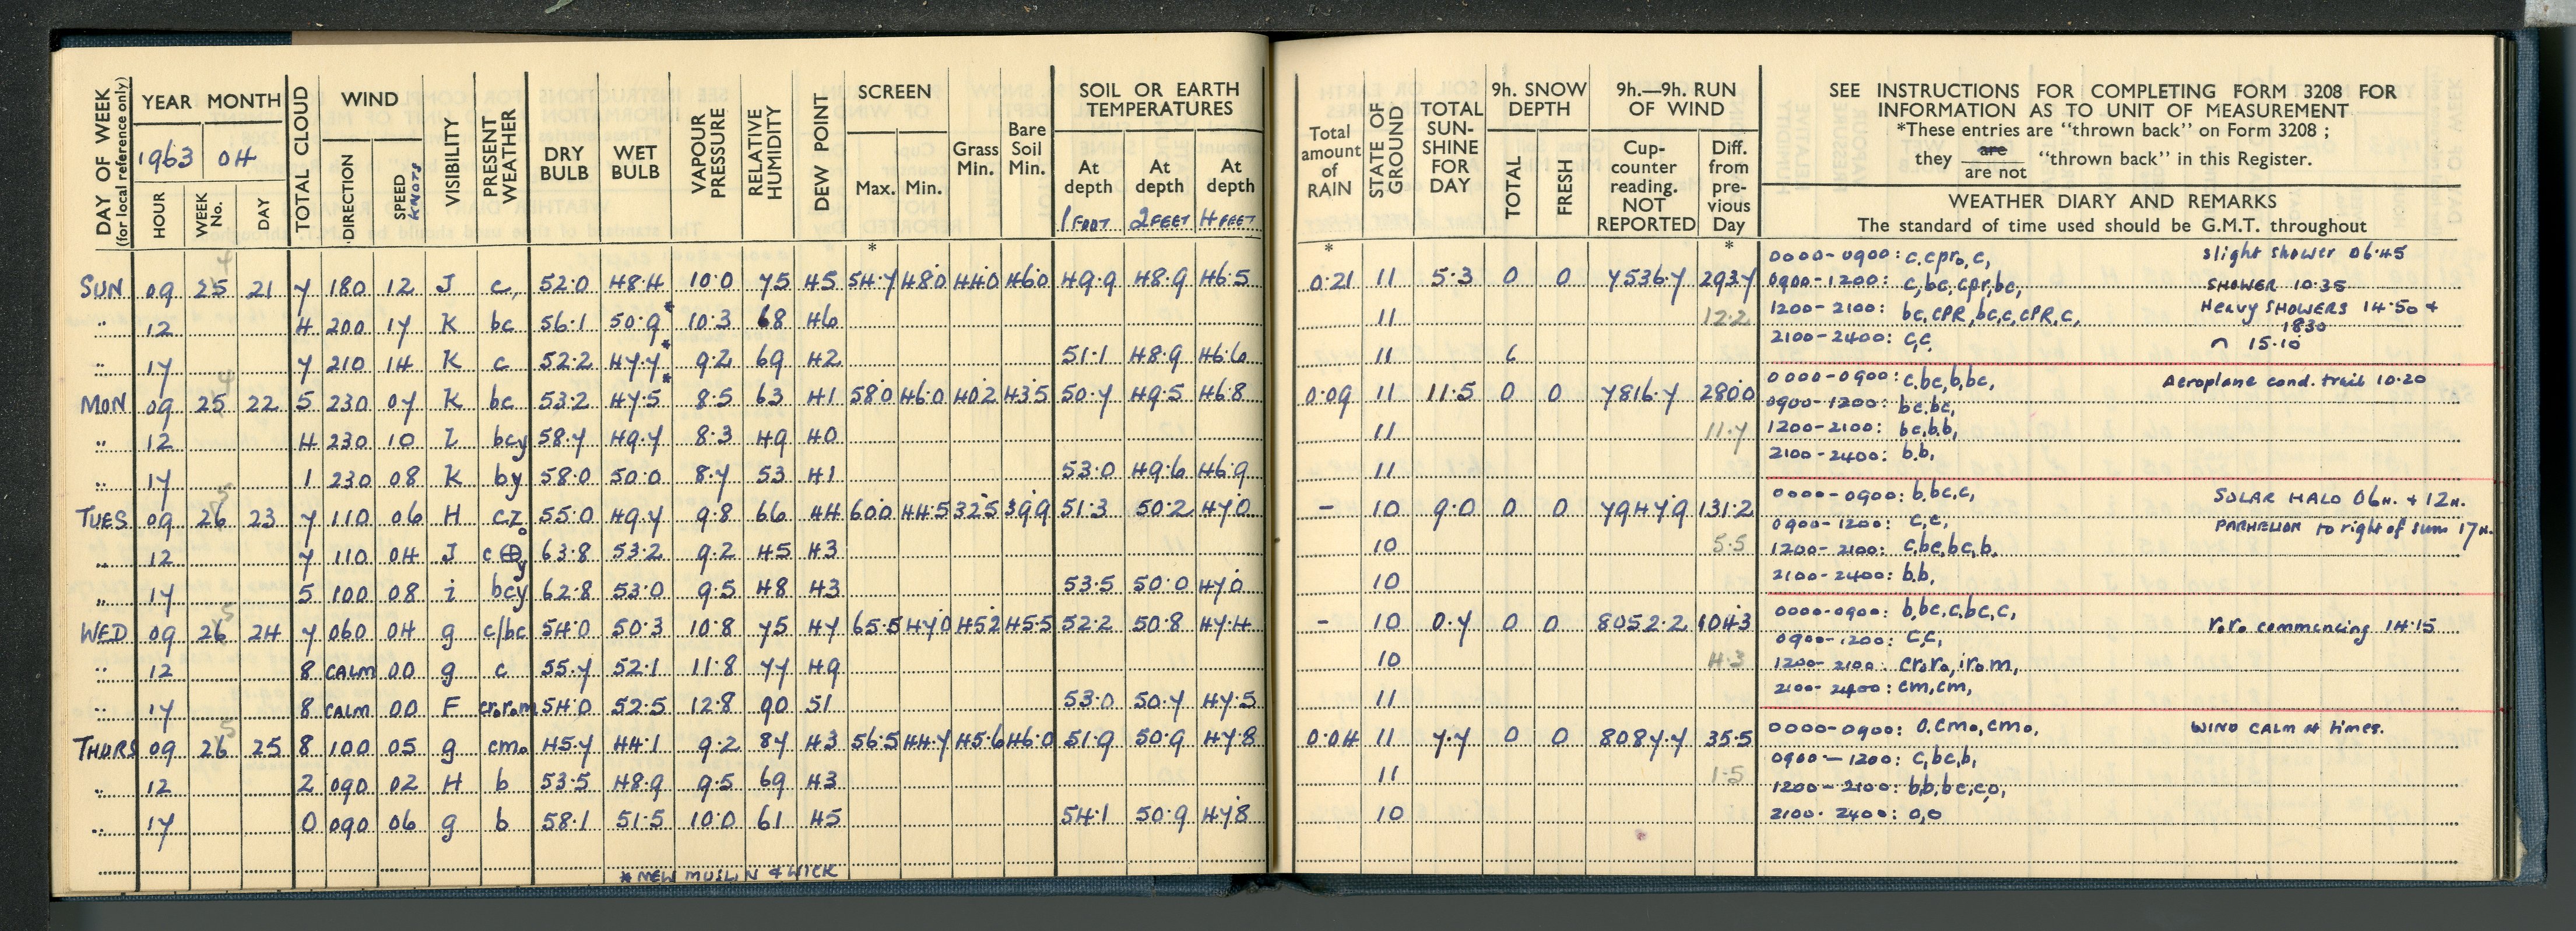 DAY OF WEEK (for local reference only)
YEAR MONTH
1963 04
HOUR WEEK No. DAY
TOTAL CLOUD
WIND
DIRECTION SPEED KNOTS
VISIBILITY
PRESENT WEATHER
DRY BULB
WET BULB
VAPOUR PRESSURE
RELATIVE HUMIDITY
DEW POINT
SCREEN
Max. Min.
Grass Min.
Bare Soil Min.
SOIL OR EARTH TEMPERATURES
At depth At depth At depth
1 FOOT 2 FEET 4 FEET
SUN 09 25 4 21 7 180 12 J c, 52.0 48.4 10.0 75 45 54.7 48.0 44.0 46.0 49.9 48.9 46.5
" 12 4 200 17 K bc 56.1 50.9* 10.3 68 46
" 17 7 210 14 K c 52.2 47.7* 9.2 69 42 51.1 48.9 46.6
MON 09 25 4 22 5 230 07 K bc 53.2 47.5* 8.5 63 41 58.0 46.0 40.2 43.5 50.7 49.5 46.8
" 12 4 230 10 L bcy 58.7 49.7 8.3 49 40
" 17 1 230 08 K by 58.0 50.0 8.7 53 41 53.0 49.6 46.9
TUES 09 26 5 23 7 110 06 H cz₀ 55.0 49.7 9.8 66 44 60.0 44.5 32.5 39.9 51.3 50.2 47.0
" 12 7 110 04 J c⊕y 63.8 53.2 9.2 45 43
" 17 5 100 08 i bcy 62.8 53.0 9.5 48 43 53.5 50.0 47.0
WED 09 26 5 24 7 060 04 g c/bc 54.0 50.3 10.8 75 47 65.5 47.0 45.2 45.5 52.2 50.8 47.4
" 12 8 CALM 00 g c 55.7 52.1 11.8 77 49
" 17 8 CALM 00 F cr₀r₀m 54.0 52.5 12.8 90 51 53.0 50.7 47.5
THURS 09 26 5 25 8 100 05 g cm₀ 45.7 44.1 9.2 87 43 56.5 44.7 45.6 46.0 51.9 50.9 47.8
" 12 2 090 02 H b 53.5 48.9 9.5 69 43
" 17 0 090 06 g b 58.1 51.5 10.0 61 45 54.1 50.9 47.8
* NEW MUSLIN & WICK
Total amount of RAIN
STATE OF GROUND
TOTAL SUN-SHINE FOR DAY
9h. SNOW DEPTH
TOTAL FRESH
9h.—9h. RUN OF WIND
Cup-counter reading. NOT REPORTED
Diff. from pre-vious Day
SEE INSTRUCTIONS FOR COMPLETING FORM 3208 FOR
INFORMATION AS TO UNIT OF MEASUREMENT
*These entries are "thrown back" on Form 3208 ;
they are / are not "thrown back" in this Register.
WEATHER DIARY AND REMARKS
The standard of time used should be G.M.T. throughout
0.21 11 5.3 0 0 7536.7 293.7
11 12.2
11 6
0.09 11 11.5 0 0 7816.7 280.0
11 11.7
11
- 10 9.0 0 0 7947.9 131.2
10 5.5
10
- 10 0.7 0 0 8052.2 104.3
10 4.3
11
0.04 11 7.7 0 0 8087.7 35.5
11 1.5
10
0000-0900: c,cpr₀,c, slight shower 06.45
0900-1200: c,bc,cpr,bc, SHOWER 10.35
1200-2100: bc,cPR,bc,c,cPR,c, Heavy SHOWERS 14.50 & 1830
2100-2400: c,c, ⌒ 15.10
0000-0900: c,bc,b,bc, Aeroplane cond. trail 10.20
0900-1200: bc,bc,
1200-2100: bc,b,b,
2100-2400: b,b,
0000-0900: b,bc,c, SOLAR HALO 06H. & 12H.
0900-1200: c,c, PARHELION to right of sun 17H.
1200-2100: c,bc,bc,b.
2100-2400: b,b,
0000-0900: b,bc,c,bc,c,
0900-1200: c,c, r₀r₀ commencing 14.15
1200-2100: cr₀r₀,ir₀m,
2100-2400: cm,cm,
0000-0900: o,cm₀,cm₀, WIND CALM at times.
0900-1200: c,bc,b,
1200-2100: b,b,bc,c,o,
2100-2400: o,o